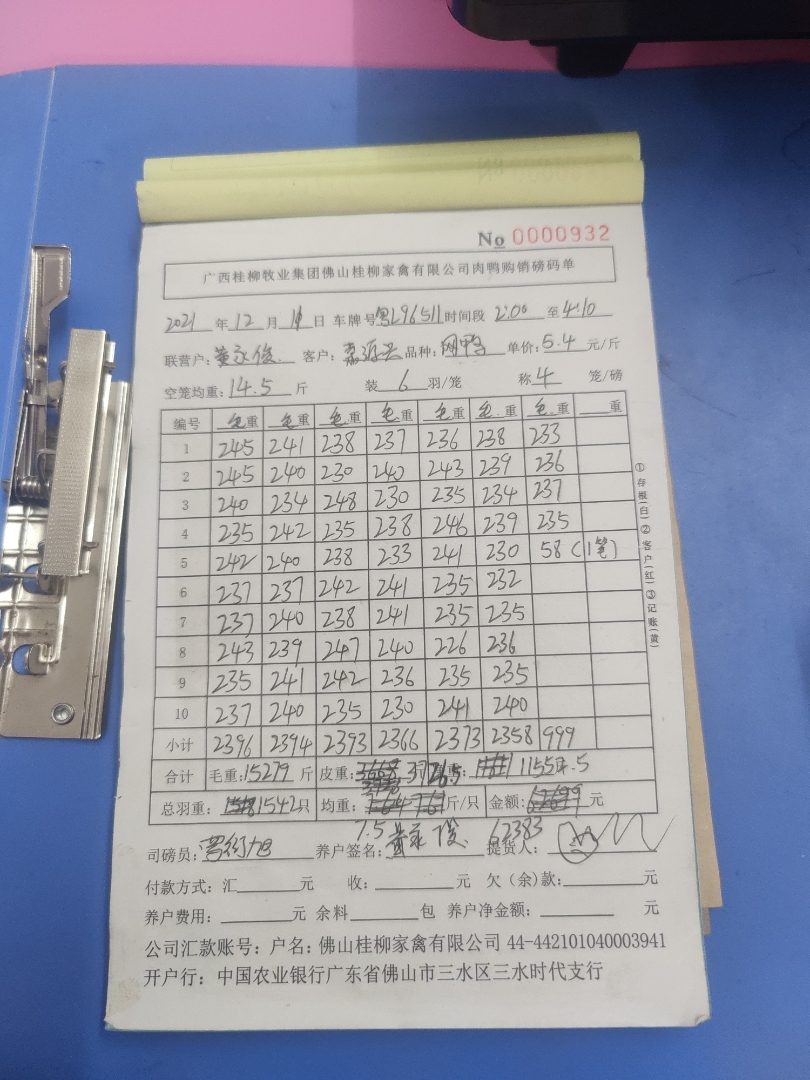 No 0000932
广西桂柳牧业集团佛山桂柳家禽有限公司肉鸭购销磅码单
2021 年 12 月 日 车牌号 粤L96511 时间段 2:00 至 4:10
联营户: 黄永俊 客户: 源兴 品种: 肉鸭 单价: 5.4 元/斤
空笼均重: 14.5 斤 装 6 羽/笼 称 4 笼/磅
编号 毛重 毛重 毛重 毛重 毛重 毛重 毛重 重
1 245 241 238 237 236 238 233
2 245 240 230 240 243 239 236
3 240 234 248 230 235 234 237
4 235 242 235 238 246 239 235
5 242 240 238 233 241 230 58 (1笼)
6 237 237 242 241 235 232
7 237 240 238 241 235 235
8 243 239 247 240 226 236
9 235 241 242 236 235 235
10 237 240 235 230 241 240
小计 2396 2394 2393 2366 2373 2358 999
合计 毛重: 15279 斤 皮重: 3726.5 1155.5
总羽重: 1542 只 均重: 斤/只 金额: 元
7.5 62383
司磅员: 养户签名: 黄永俊 提货人:
付款方式: 汇 元 收: 元 欠(余)款: 元
养户费用: 元 余料 包 养户净金额: 元
公司汇款账号: 户名: 佛山桂柳家禽有限公司 44-442101040003941
开户行: 中国农业银行广东省佛山市三水区三水时代支行
①存根(白)②客户(红)③记账(黄)